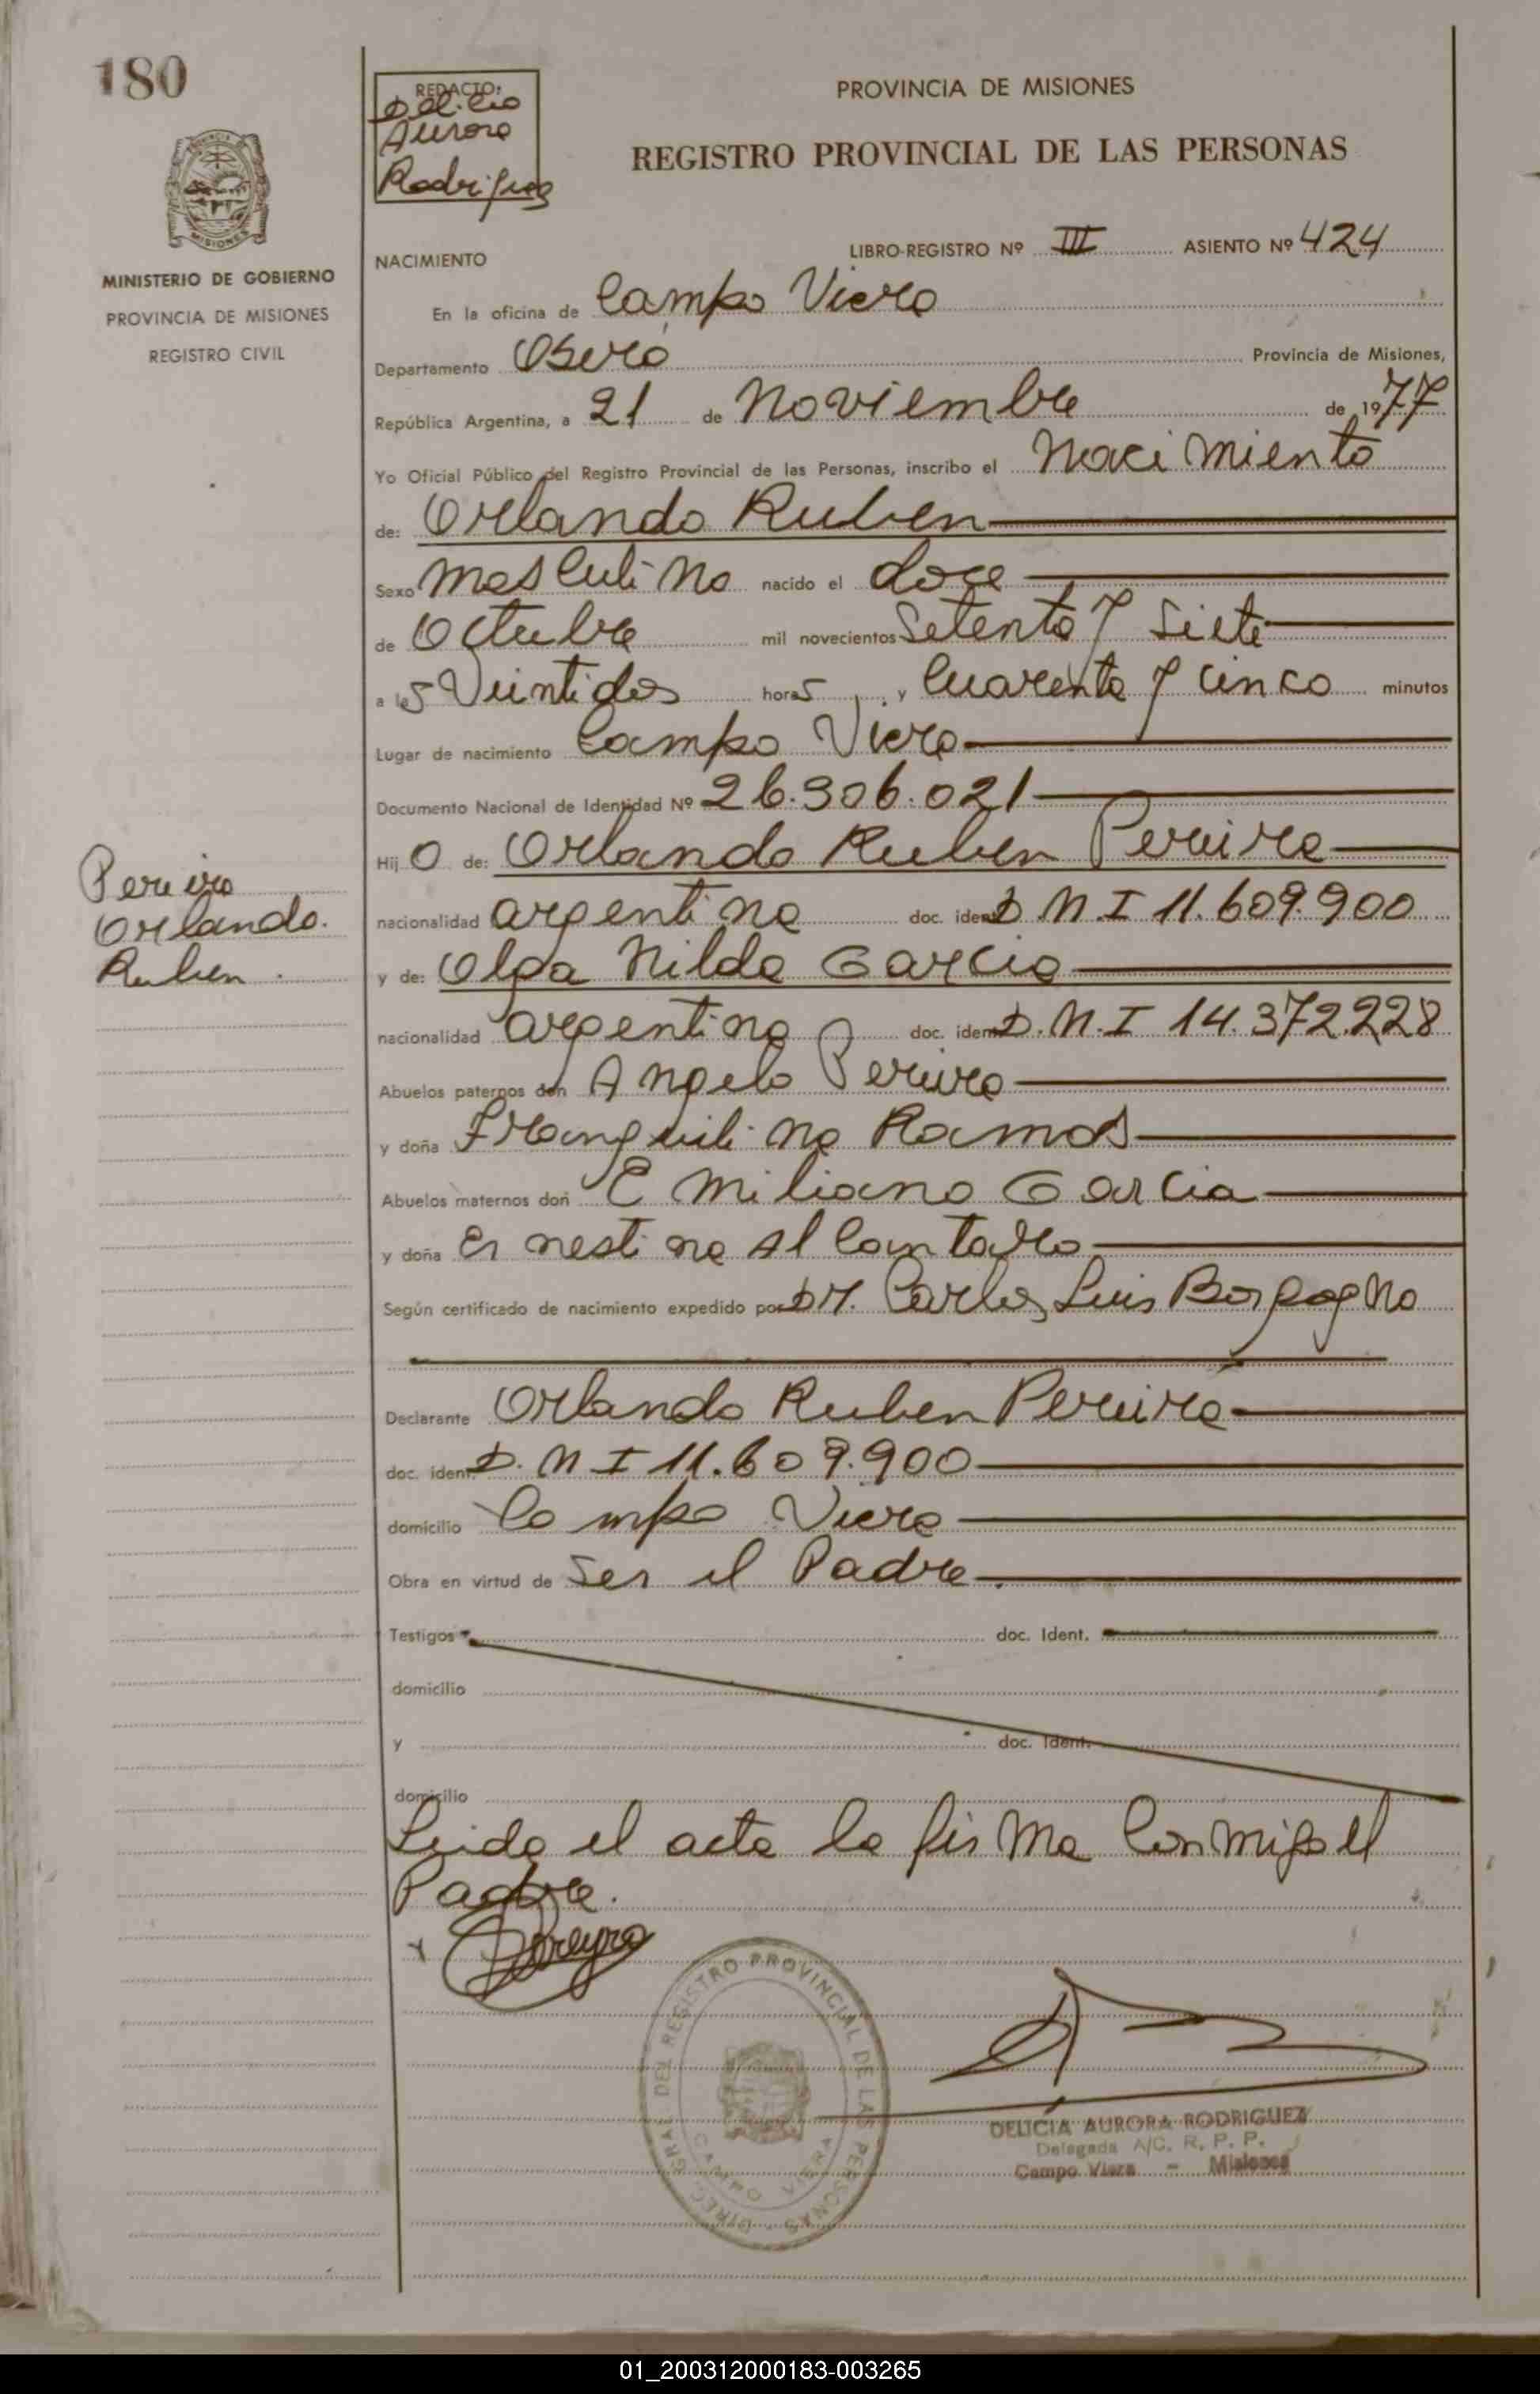 180
REDACTO:
Delicia
Aurora
Rodriguez
PROVINCIA DE MISIONES
REGISTRO PROVINCIAL DE LAS PERSONAS
MISIONES
MINISTERIO DE GOBIERNO
PROVINCIA DE MISIONES
REGISTRO CIVIL
LIBRO-REGISTRO Nº III ASIENTO Nº 424
NACIMIENTO
En la oficina de Campo Viera
Departamento Oberá Provincia de Misiones,
República Argentina, a 21 de Noviembre de 1977
Yo Oficial Público del Registro Provincial de las Personas, inscribo el Nacimiento
de: Orlando Ruben
Sexo Masculino nacido el doce
de Octubre mil novecientos Setenta y Siete
a las Veintidos horas y Cuarenta y Cinco minutos
Lugar de nacimiento Campo Viera
Documento Nacional de Identidad Nº 26.306.021
Hijo de: Orlando Ruben Pereira
nacionalidad argentina doc. ident D.N.I 11.609.900
y de: Olga Nilda Garcia
nacionalidad argentina doc. ident D.N.I 14.372.228
Abuelos paternos don Angelo Pereira
y doña Tranquilina Ramos
Abuelos maternos don Emiliano Garcia
y doña Ernestina Alcantaro
Según certificado de nacimiento expedido por Dr. Carlos Luis Borgogno
Declarante Orlando Ruben Pereira
doc. ident D.N.I 11.609.900
domicilio Campo Viera
Obra en virtud de Ser el Padre
Testigos doc. Ident.
domicilio
y doc. Ident.
domicilio
Leida el acta la firma Conmigo el
Padre.
Pereyra
Pereira
Orlando.
Ruben
DIREC. GRAL. DEL REGISTRO PROVINCIAL DE LAS PERSONAS
CAMPO VIERA
DELICIA AURORA RODRIGUEZ
Delegada A/C. R. P. P.
Campo Viera - Misiones
01_200312000183-003265